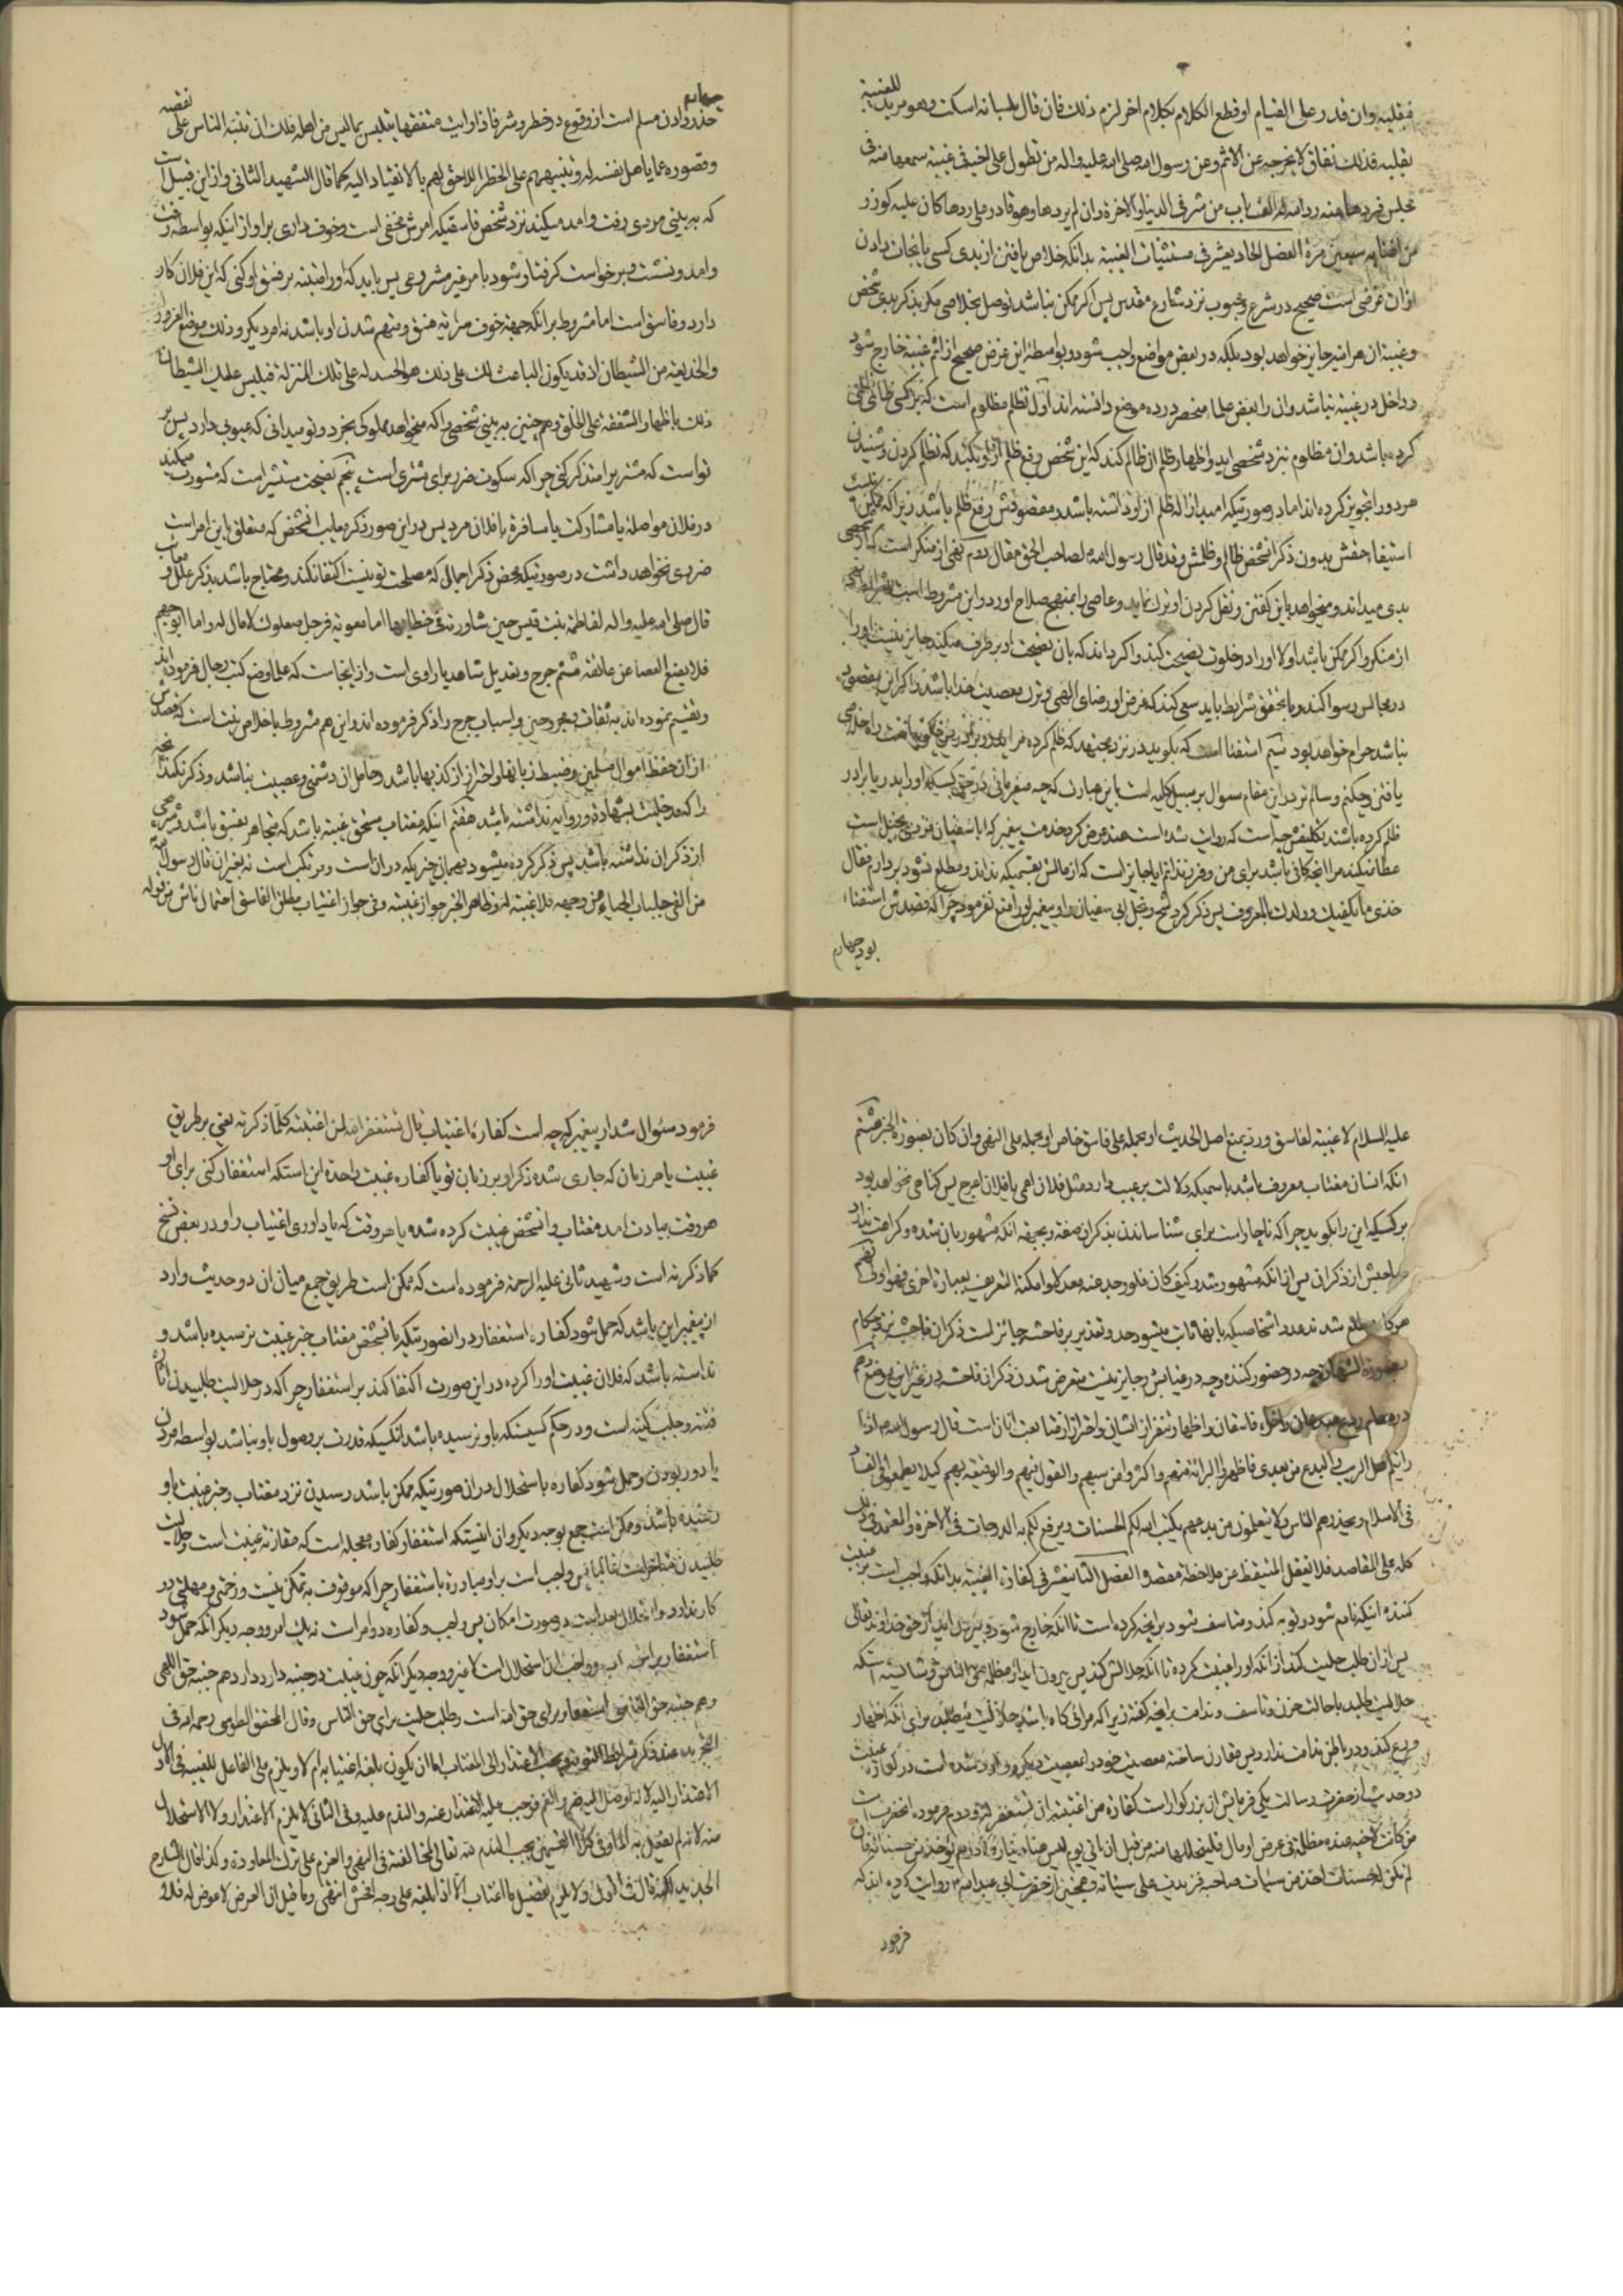 فبقلبه وان قدر على القیام او قطع الكلام بكلام اخر لزم ذلك فان قال بلسانه اسكت وهو مرید للغیبة
بقلبه فذلك نفاق لا یخرجه عن الاثم وعن رسول الله صلی الله علیه واله من تطول علی اخیه فی غیبة سمعها منه فی
مجلس فردها عنه رد الله له الف باب من شر فی الدنیا والاخرة وان لم یردها وهو قادر علی ردها كان علیه كوزر
من اغتابه سبعین مرة الفصل الحادیعشر فی مستثنیات الغیبة بدانکه خلاص یافتن از بدی کسی یا نجات دادن
از ان غرضی است صحیح در شرع و محبوب نزد شارع مقدس پس اگر ممکن نباشد توصل بخلاصی مگر بذکر بدی شخص
و غیبة ان هراینه جایز خواهد بود بلکه در بعض مواضع واجب شود و بواسطه این غرض صحیح از اثم غیبة خارج شود
و داخل در غیبة نباشد و ان را بعض علما منحصر در ده موضع دانسته اند اول تظلم مظلوم است که بر کسی ظالمی
کرده باشد و ان مظلوم نزد شخصی اید و اظهار ظلم از ظالم کند که این شخص رفع ظلم از او بکند که تظلم کردن و شنیدن
هر دو را تجویز کرده اند اما در صورتیکه امید ازاله ظلم از او داشته باشد و مقصودش رفع ظلم باشد زیرا که ممکن نیست
استیفاء حقش بدون ذکر انشخص ظالم و ظلمش وقد قال رسول الله لصاحب الحق مقال دویم نهی از منکر است که از شخصی
بدی میداند و میخواهد باین گفتن و نقل کردن او ترک نماید و عاصی را بمنهج صلاح اورد و این مشروط است بشرایط نهی
از منکر و اگر ممکن باشد اولا او را در خلوت نصیحت کند و اگر داند که بان نصیحت او بر طرف میکند جایز نیست او را
در مجالس رسوا کند و با تحقق شرایط باید سعی کند که غرض او رضای الهی و ترک معصیت خدا باشد و اگر این مقصود
نباشد حرام خواهد بود سیم استفتا است که بگوید در نزد مجتهد که ظلم کرده مرا پدر
یافتن و حکم و سالم تر در این مقام سوال بر سبیل کلیه است باین عبارت که چه میفرمائی در حق کسیکه او را پدر یا برادر
ظلم کرده باشند تکلیفش چیست که روایت شده است هند عرض کرد خدمت پیغمبر که ابا سفیان مردی بخیل است
عطا نمیکند مرا انچه کافی باشد برای من و فرزندانم ایا جایز است که از مالش بقسمیکه نداند و مطلع نشود بردارم فقال
خذی ما یکفیك وولدك بالمعروف پس ذکر کرد شح و بخل ابی سفیان را و پیغمبر او را منع نفرمود چرا که قصدش استفتاء
بود چهارم
چهارم
حذر دادن مسلم است از وقوع در خطر و شر فاذا رایت متفقها یتلبس بما لیس من اهله فلك ان تنبه الناس علی نقصه
وقصوره عما یاهل نفسه له وتنبیههم علی الخطر اللاحق لهم بالانقیاد الیه كما قال الشهید الثانی و از این قبیل است
که به بینی مردی رفت و امد میکند نزد شخص فاسقیکه امرش مخفی است و خوف داری بر او از اینکه بواسطه رفت
و امد و نشست و برخواست گرفتار شود بامر غیر مشروعی پس باید که او را متنبه بر فسق او کنی که این فلان کار
دارد و فاسق است اما مشروط بر انکه جهة خوف سرایة فسق و متهم شدن او باشد نه امر دیگر وذلك موضع الغرور
والخدیعة من الشیطان اذ قد یكون الباعث لك علی ذلك هو الحسد له علی تلك المنزلة فیلبس علیك الشیطان
ذلك باظهار الشفقة علی الخلق و همچنین به بینی شخصی را که میخواهد مملوکی بخرد و تو میدانی که عیوبی دارد پس بر
تو است که مشتری را متذکر کنی چرا که سکوت ضرر برای مشتری است پنجم نصیحت مستشیر است که مشورت میکند
در فلان مواصله یا مشارکت یا مسافرة با فلان مرد پس در این صور ذکر معایب انشخص که متعلق باین امر است
ضرری نخواهد داشت در صورتیکه بمحض ذکر اجمالی که مصلحت تو نیست اکتفا نکند و محتاج باشد بذکر علل و معایب
قال صلی الله علیه واله لفاطمة بنت قیس حین شاورته فی خطابها اما معویة فرجل صعلوك لا مال له واما ابوجهم
فلا یضع العصا عن عاتقه ششم جرح و تعدیل شاهد یا راوی است و از اینجاست که علما وضع کتب رجال فرموده اند
و تقسیم نموده اند به ثقات و مجروحین و اسباب جرح را ذکر فرموده اند و این هم مشروط باخلاص نیت است که قصدش
از ان حفظ اموال مسلمین و ضبط زبانها و احتراز از کذبها باشد و حامل ان دشمنی و عصبیت نباشد و ذکر نکند انچه
را که مدخلیت بشهادة و روایه نداشته باشد هفتم اینکه مغتاب مستحق غیبة باشد که متجاهر بفسق باشد و شرمی
از ذکر ان نداشته باشد پس ذکر کرده میشود بهمان چیزیکه در ان است و مرتکب است نه بغیر ان قال رسول الله
من القی جلباب الحیاء عن وجهه فلا غیبة له وظاهر الخبر جواز غیبته وفی جواز اغتیاب مطلق الفاسق احتمال ناش من قوله
علیه السلام لا غیبة لفاسق ورد بمنع اصل الحدیث او بحمله علی فاسق خاص او بحمله علی النهی وان كان بصورة الخبر هشتم
انکه انسان مغتاب معروف باشد باسمیکه دلالت بر عیب دارد مثل فلان اعمی یا فلان اعرج پس گناهی نخواهد بود
بر کسیکه این را بگوید چرا که ناچار است برای شناساندن بذکر ان صفة و بجهة انکه مشهور بان شده و کراهت ندارد
صاحبش از ذکر ان پس از انکه مشهور شد وكیف كان فلو وجد عنه معدلا وامكنه التعریف بعبارة اخری فهو اولی نهم
هرگاه مطلع شد عدد اشخاصیکه بانها ثابت میشود حد و تعذیر بر فاحشه جائز است ذکر ان فاحشه نزد حکام
بصورة الشهادة چه در حضور کننده و چه در غیابش و جایز نیست متعرض شدن ذکر ان فاحشه در غیر این موضع دهم
در مقام فاسقان و اظهار تنفر از ایشان و احتراز از متابعت انان است قال رسول الله اذا
رایتم اهل الریب والبدع من بعدی فاظهروا البرائة منهم واكثروا من سبهم والقول فیهم والوقیعة بهم كیلا یطمعوا فی الفساد
فی الاسلام ویحذرهم الناس ولا یتعلمون من بدعهم یكتب الله لكم الحسنات ویرفع لكم به الدرجات فی الاخرة والعمدة فی ذلك
كله علی المقاصد فلا یغفل المتیقظ عن ملاحظة مقصده الفصل الثانیعشر فی كفارة الغیبة بدانکه واجب است بر غیبت
کننده اینکه نادم شود و توبه کند و متاسف شود بر انچه کرده است تا انکه خارج شود و بیرون اید از حق خداوند تعالی
پس از ان طلب حلیت کند از انکه او را غیبت کرده تا انکه حلالش کند پس بیرون اید از مظلمه حق الناس و شایسته استکه
حلالیت طلبد با حالت حزن و تاسف و ندامت بر انچه گفته زیرا که مرائی گاه باشد حلالیت میطلبد برای انکه اظهار
ورع کند و در باطن ندامت ندارد پس مقارن ساخته معصیت خود را بمعصیت دیگر و وارد شده است در کفاره غیبت
دو حدیث از حضرت رسالت یکی فرمایش ان بزرگوار است كفارة من اغتبته ان تستغفر له و دویم فرموده انحضرت است
من كانت لاخیه عنده مظلمة فی عرض او مال فلیتحللها منه من قبل ان یاتی یوم لیس هناك دینار ولا درهم یؤخذ من حسناته فان
لم تكن له حسنات اخذ من سیئات صاحبه فزیدت علی سیئاته و همچنین از حضرت ابی عبد الله روایت کرده اند که
فرمود
فرمود سئوال شد از پیغمبر که چه است کفارة اغتیاب قال تستغفر الله لمن اغتبته كلما ذكرته یعنی بر طریق
غیبت یا هر زبان که جاری شده ذکر او بر زبان تو یا کفاره غیبت واحدة این استکه استغفار کنی برای او
هر وقت بیادت امد مغتاب و انشخص غیبت کرده شده یا هر وقت که یاد اوری اغتیاب را و در بعض نسخ
كما ذكرته است و شهید ثانی علیه الرحمة فرموده است که ممکن است طریق جمع میان ان دو حدیث وارد
از پیغمبر این باشد که حمل شود کفاره استغفار در انصورتیکه بانشخص مغتاب خبر غیبت نرسیده باشد و
ندانسته باشد که فلان غیبت او را کرده در این صورت اکتفا کند بر استغفار چرا که در حلالیت طلبیدن اثاره
فتنه و جلب کینه است و در حکم کسیستکه باو نرسیده باشد انکسیکه قدرت بر وصول باو نباشد بواسطه مردن
یا دور بودن و حمل شود کفاره باستحلال در ان صورتیکه ممکن باشد رسیدن نزد مغتاب و خبر غیبت باو
رسیده باشد و ممکن است جمع بوجه دیگر و ان اینستکه استغفار کفاره معجله است که مقارنه غیبت است و حلالیت
طلبیدن متاخر است غالبا پس واجب است بر او مبادرة باستغفار چرا که موقوف به تمکن نیست و زحمتی و مهلتی در
کار ندارد و استحلال بعد است در صورت امکان پس واجب و کفاره دو امر است نه یك امر و وجه دیگر انکه حمل شود
استغفار بر استحباب و واجب ان استحلال است لا غیر و وجه دیگر انکه چون غیبت دو جنبه دارد هم جنبه حق اللهی
و هم جنبه حق الناسی استغفار برای حق الله است و طلب حلیت برای حق الناس وقال المحقق الطوسی رحمه الله فی
التجرید عند ذكر شرائط التوبة ویجب الاعتذار الی المغتاب اما ان یكون بلغه اغتیابه ام لا ویلزم علی الفاعل للغیبة فی الاول
الاعتذار الیه لانه اوصل الیه ضرر الغم فوجب علیه الاعتذار عنه والندم علیه وفی الثانی لا یلزم الاعتذار ولا الاستحلال
منه لانه لم یفعل به الما وفی كلا القسمین یجب الندم لله تعالی لمخالفته فی النهی والعزم علی ترك المعاودة وكذا قال الشارح
الجدید لكنه قال فی الاول ولا یلزم تفصیل ما اغتاب الا اذا بلغه علی وجه افحش انتهی وما قیل ان العرض لا عوض له فلا